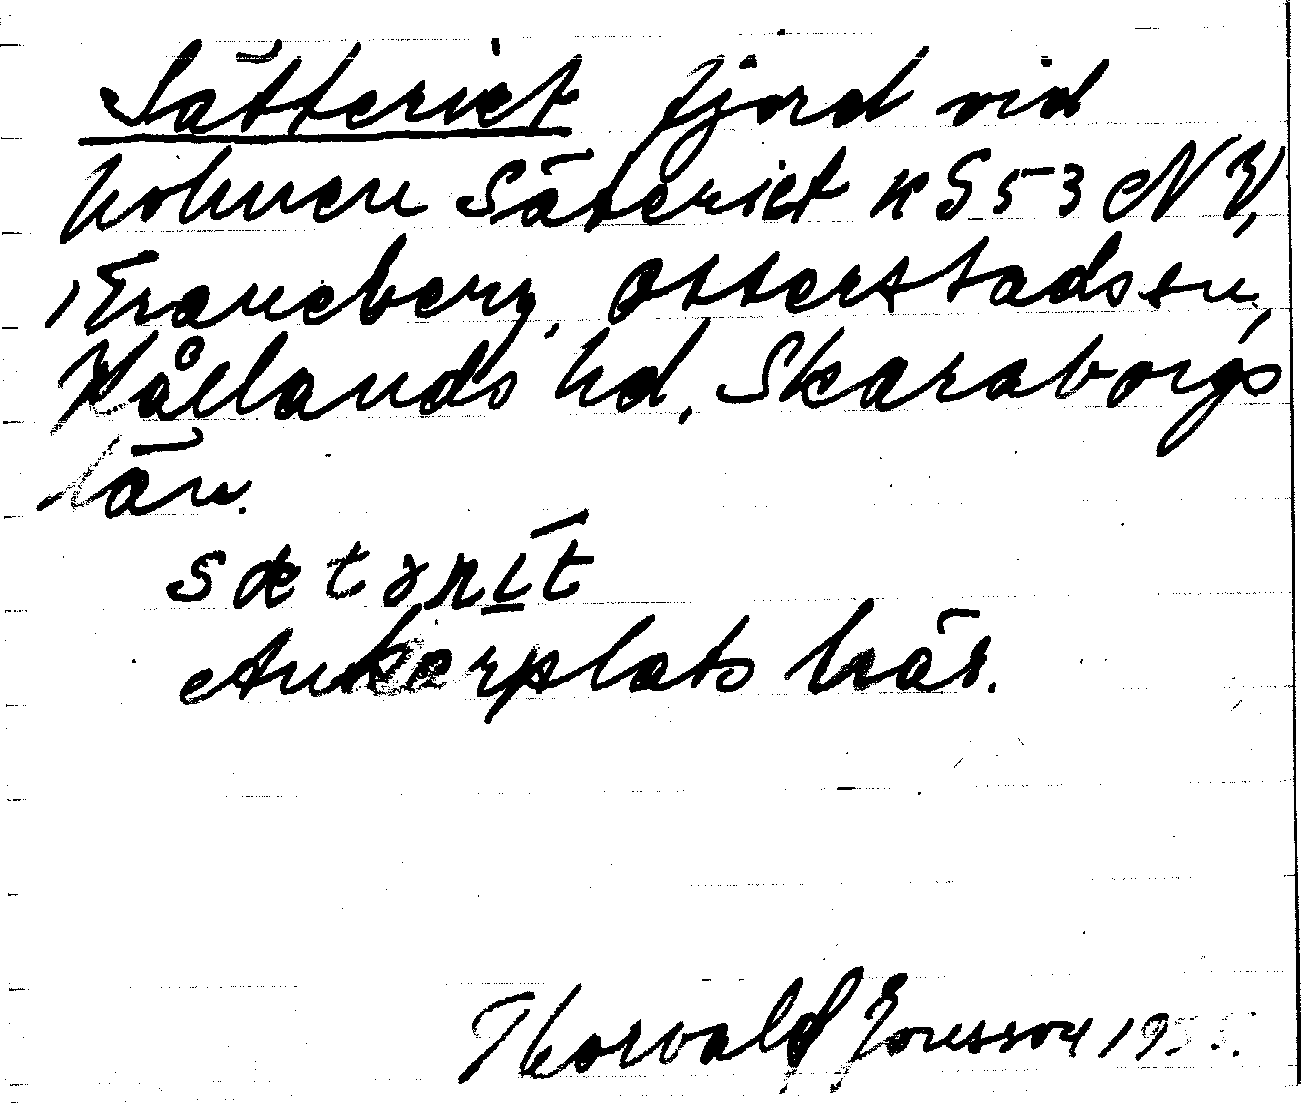 Sätteriet fjord vid
holmen Säteriet k S 53 NV,
Traneberg, Otterstads sn,
Kållands hd, Skaraborgs
län.
sætərīt
Ankarplats här.
Thorvald Jonsson 1955.